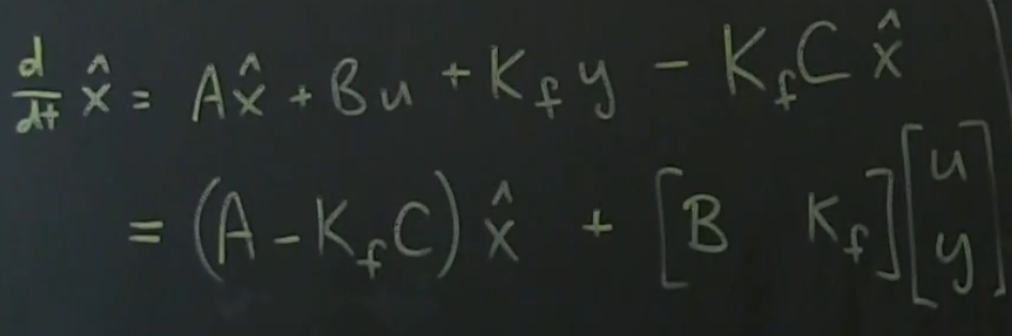 d/dt x̂ = Ax̂ + Bu + K_f y − K_f C x̂
= (A − K_f C) x̂ + [B K_f] [u y]